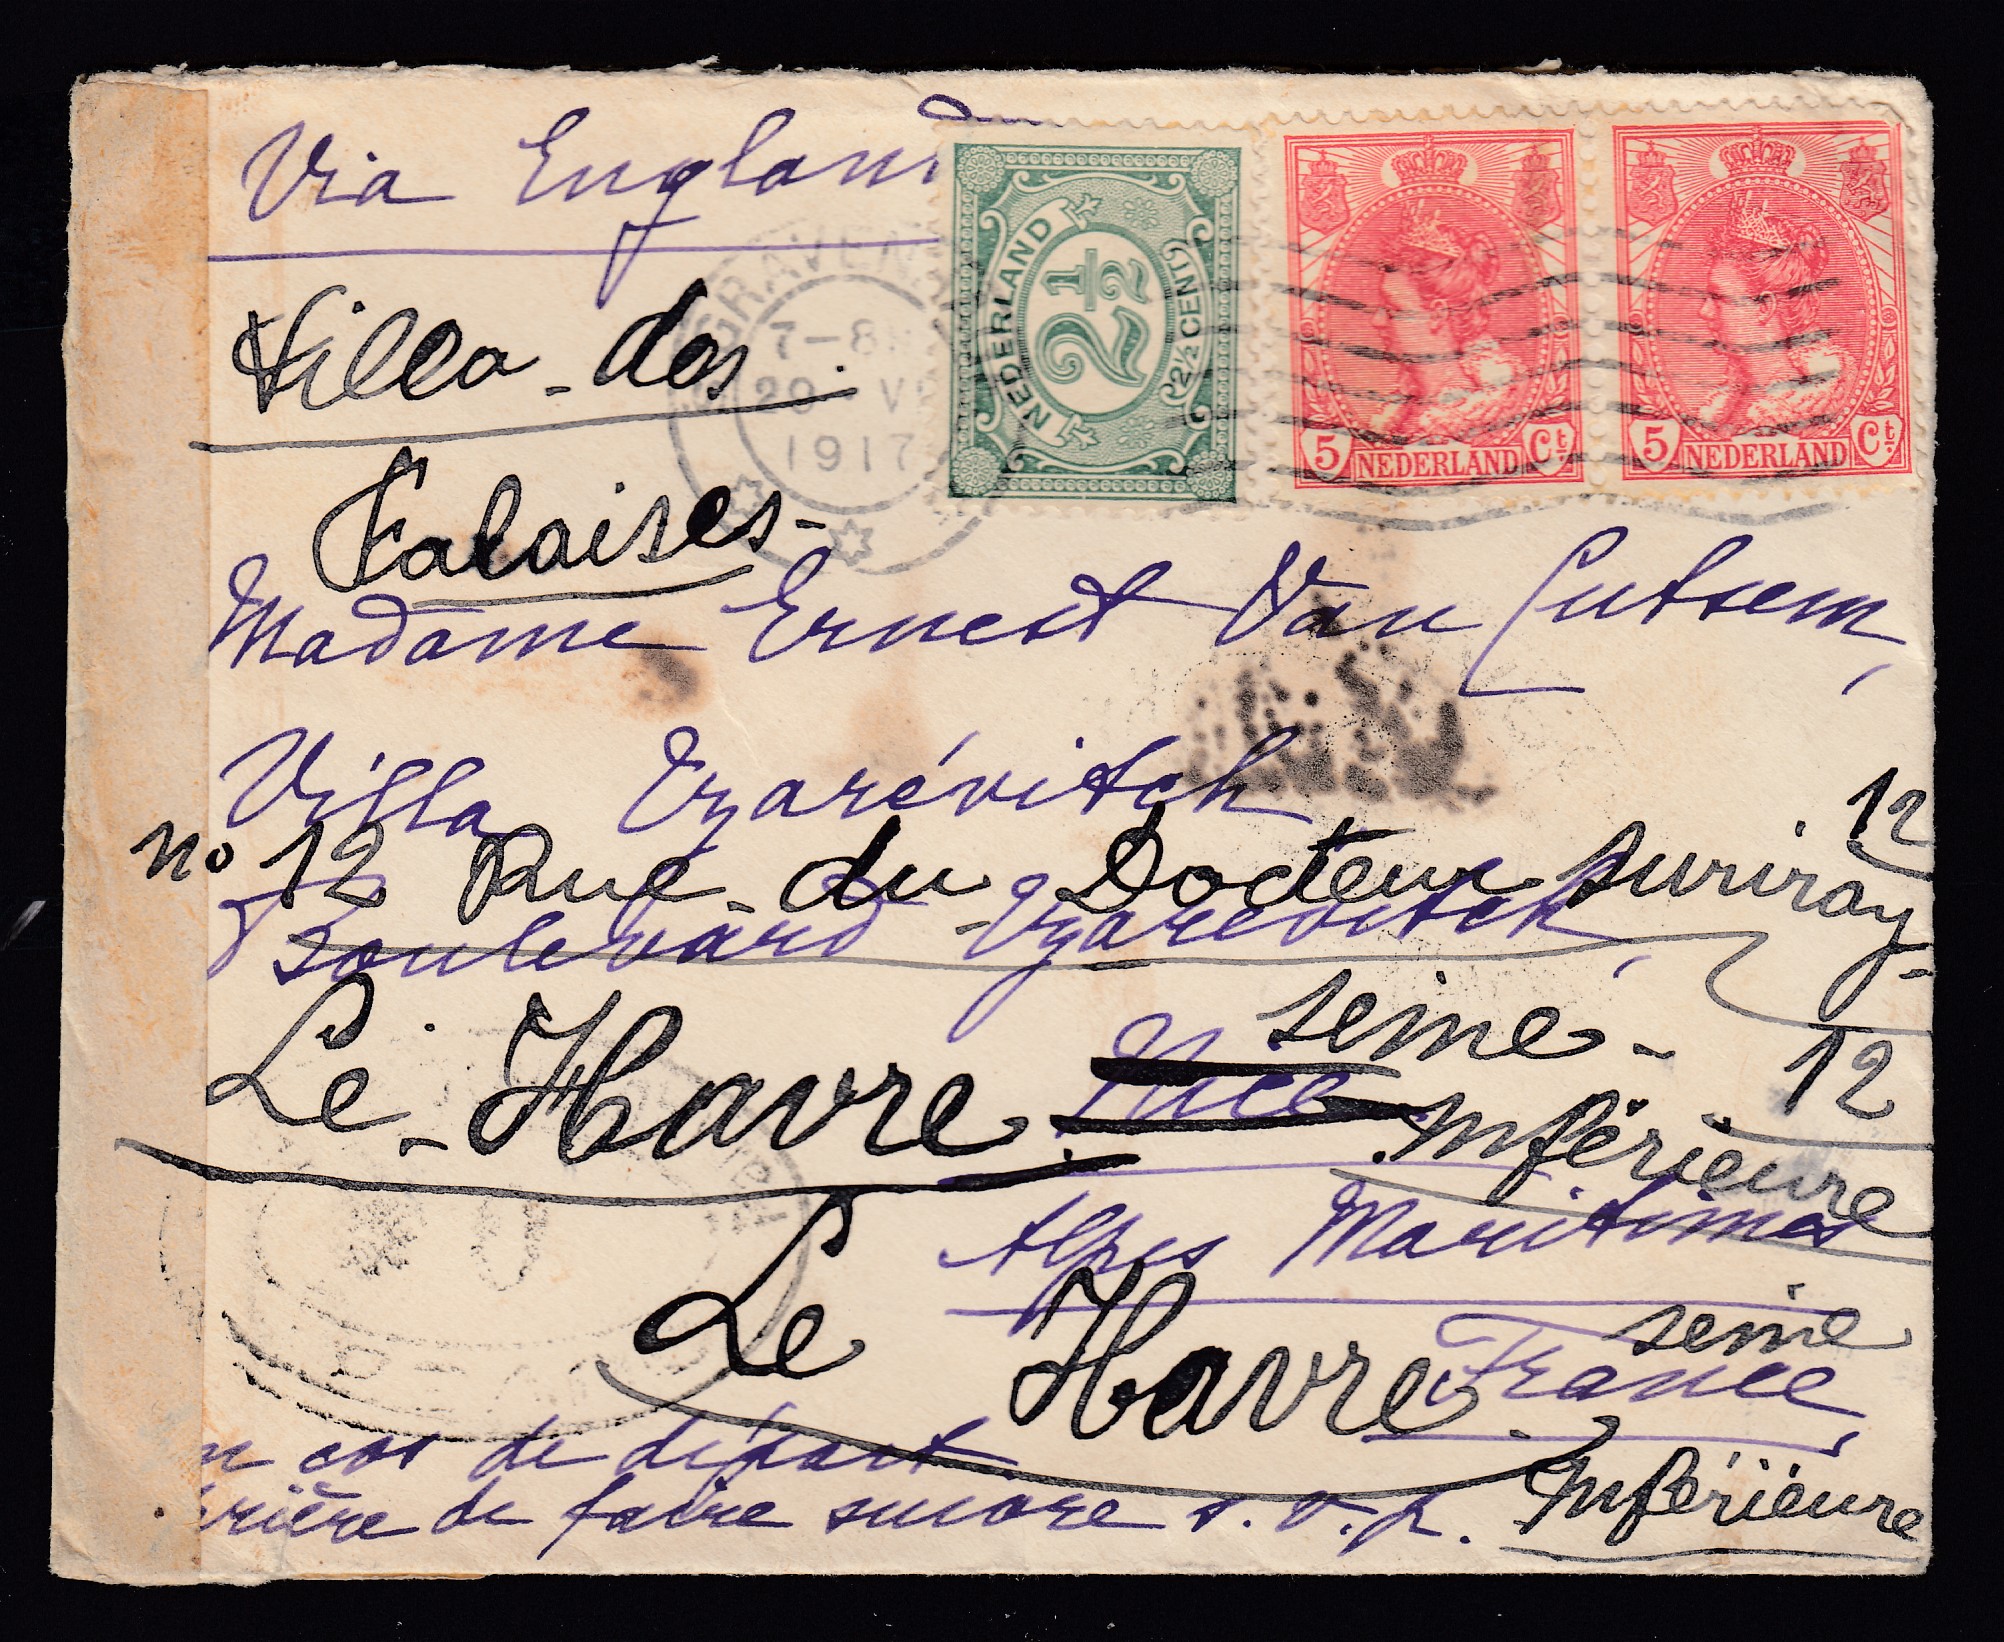 Via England
NEDERLAND
2½
(2½ CENT)
5 Ct
NEDERLAND
5 Ct
NEDERLAND
GRAVEN
7-8
20 VI
1917
Villa des
Falaises
Madame Ernest Van Cutsem,
Villa Tzarévitch
12
no 12 Rue du Docteur Suriray
Boulevard Tzarévitch,
Le Havre
Seine
Nice
12
Inférieure
Alpes Maritimes
Le Havre
Seine
France,
Inférieure
n cas de départ
rière de faire suivre s.v.p.